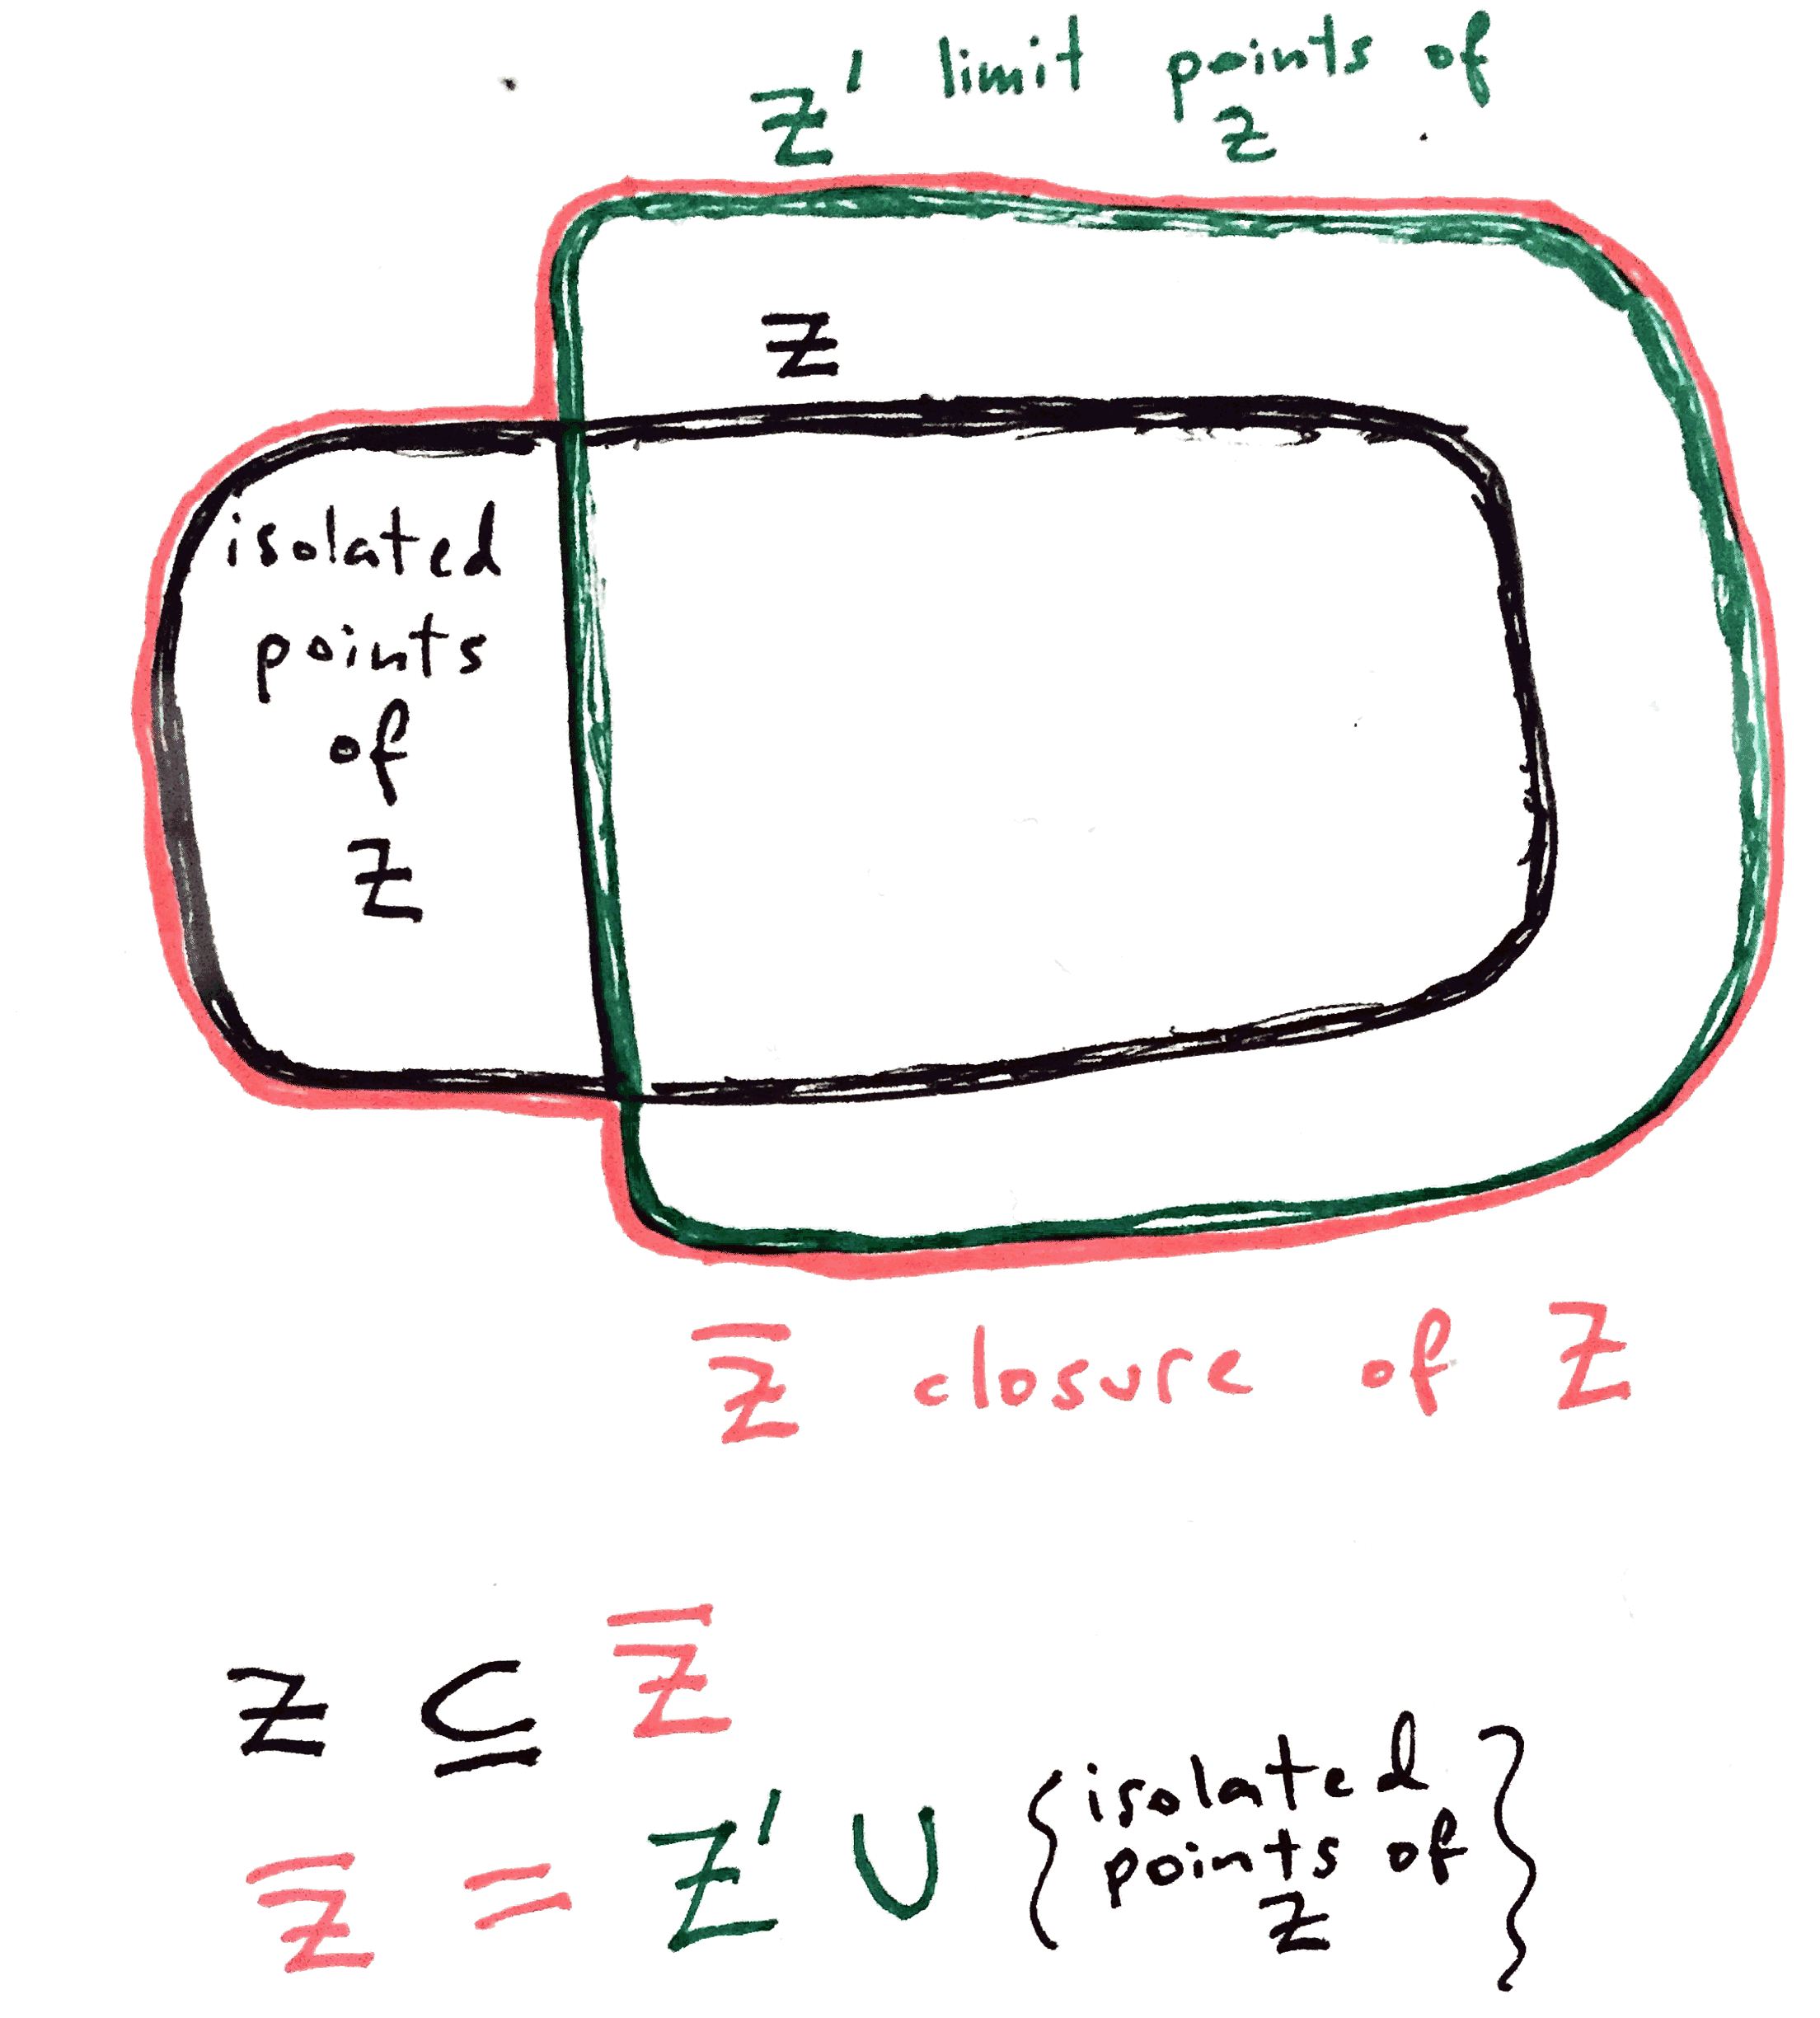 Z' limit points of
Z
Z
isolated
points
of
Z
Z̅ closure of Z
Z ⊆ Z̅
Z̅ = Z' ∪ {isolated
points of
Z}